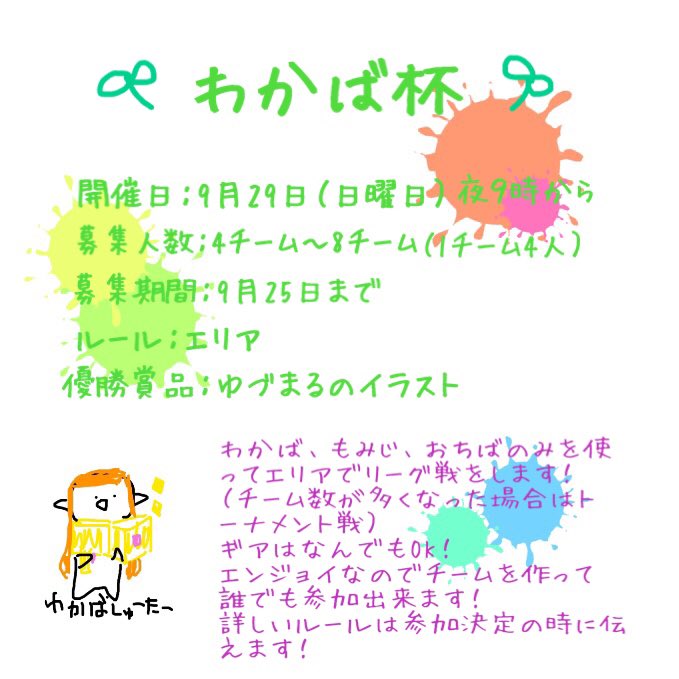 わかば杯
開催日;9月29日(日曜日)夜9時から
募集人数;4チーム～8チーム(1チーム4人)
募集期間;9月25日まで
ルール;エリア
優勝賞品;ゆづまるのイラスト
わかば、もみじ、おちばのみを使
ってエリアでリーグ戦をします!
(チーム数が多くなった場合はト
ーナメント戦)
ギアはなんでもOk!
エンジョイなのでチームを作って
誰でも参加出来ます!
詳しいルールは参加決定の時に伝
えます!
わかばしゅーたー